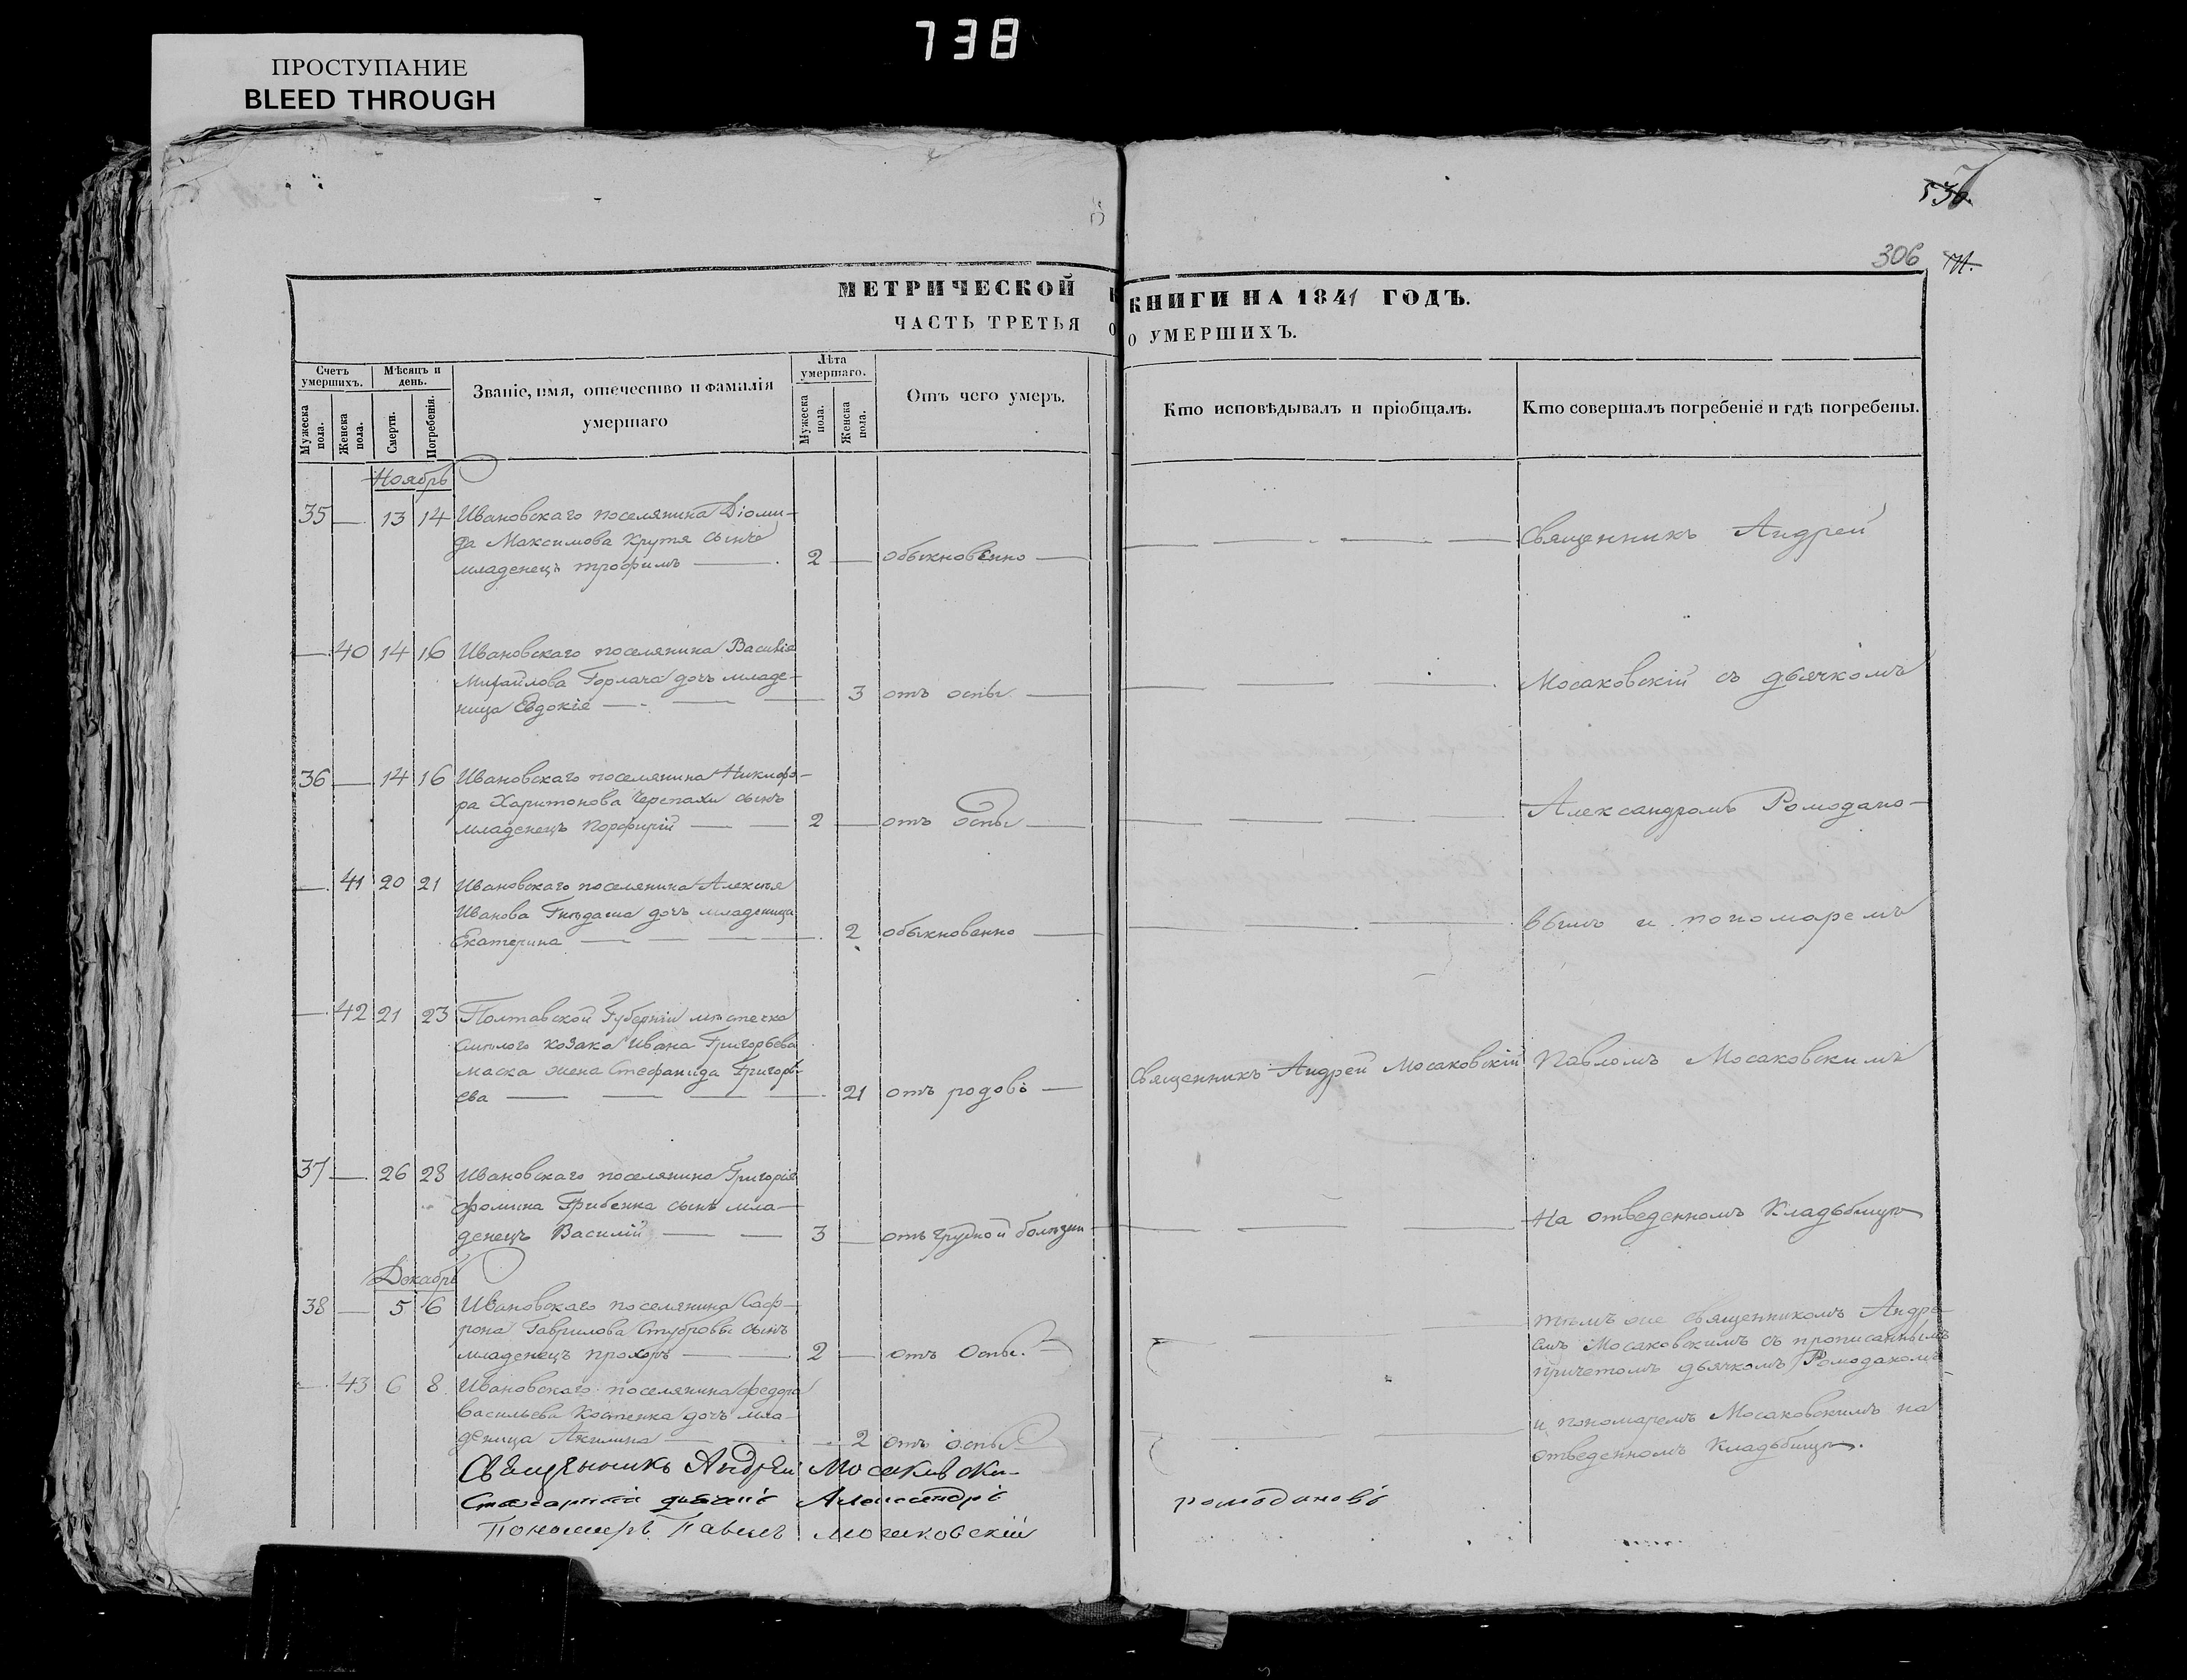 738
ПРОСТУПАНИЕ
BLEED THROUGH
530.
7
306
МЕТРИЧЕСКОЙ КНИГИ НА 1841 ГОДЪ.
ЧАСТЬ ТРЕТЬЯ О УМЕРШИХЪ.
Счетъ умершихъ.
Мужеска пола.
Женска пола.
Мѣсяцъ и день.
Смерти.
Погребенія.
Званіе, имя, отечество и фамилія
умершаго
Лѣта умершаго.
Мужеска пола.
Женска пола.
Отъ чего умеръ.
Кто исповѣдывалъ и пріобщалъ.
Кто совершалъ погребеніе и гдѣ погребены.
Ноябрь
35 — 13 14 Ивановскаго поселянина Діоми-
да Максимова Крутя сынъ
младенецъ Трофимъ — 2 — обыкновенно — Священникъ Андрей
— 40 14 16 Ивановскаго поселянина Василія
Михайлова Горлача дочь младе-
ница Евдокія — 3 отъ оспы — Мосаковскій съ дьячкомъ
36 — 14 16 Ивановскаго поселянина Никифо-
ра Харитонова Черепахи сынъ
младенецъ Порфирій — 2 — отъ оспы — Александромъ Ромодано-
— 41 20 21 Ивановскаго поселянина Алексѣя
Иванова Гнѣдаша дочь младеница
Екатерина — 2 обыкновенно — вымъ и пономаремъ
— 42 21 23 Полтавской Губерніи мѣстечка
Смѣлого козака Ивана Григорьева
Маска жена Стефанида Григорь-
ева — 21 отъ родовъ — Священникъ Андрей Мосаковскій Павломъ Мосаковскимъ
37 — 26 28 Ивановскаго поселянина Григорія
Фомина Грибенка сынъ мла-
денецъ Василій — 3 — отъ грудной болѣзни — На отведенномъ Кладбищѣ
Декабрь
38 — 5 6 Ивановскаго поселянина Саф-
рона Гаврилова сынъ
младенецъ Прохоръ — 2 — отъ Оспы. —
тѣмъ же священникомъ Андре-
емъ Мосаковскимъ съ прописаннымъ
причетомъ дьячкомъ
— 43 6 8 Ивановскаго поселянина Феодора
Васильева Костенка дочь мла-
деница Акилина — 2 отъ оспы
и пономаремъ Мосаковскимъ на
отведенномъ Кладбищѣ.
Священникъ Андрей Мосаковски
дьячокъ Александръ Ромодановъ
Пономарь Павелъ Мосаковскій